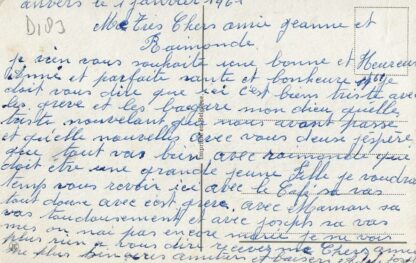 anvers le 1 janvier 1961
D183
Mes Très Chers amie jeanne et
Raimonde
je vien vous souhaite une bonne et Heureuse
Anné et parfaite sante et bonheure
doit vous dire que ici c'est biens triste avec
les greve et les bagare mon dieu quelles
triste nouvelant que nous avont passe
et quelle nouvelle avec vous deuse j'éspère
que tout vas bien avec raimonde que
doit être une grande jeune fille je voudrai
temp vous revoir ici avec le Café sa vas
tout douse avec c'est greve avec Maman sa
vas toudousement et avec joseph sa vas
mes on nai pas encore marié je ne vois
plus rien a vous dire recever ma Cheres amie
me plus sincères amitiers et baisers